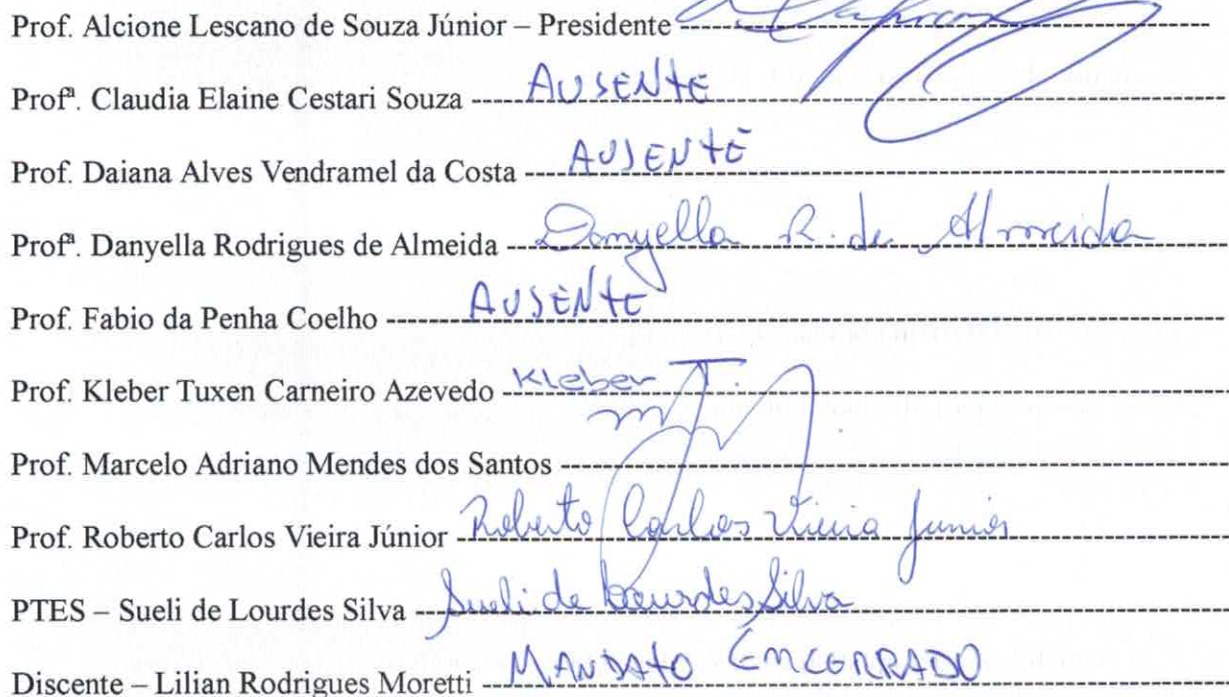 Prof. Alcione Lescano de Souza Júnior – Presidente
Profª. Claudia Elaine Cestari Souza AUSENTE
Prof. Daiana Alves Vendramel da Costa AUSENTE
Profª. Danyella Rodrigues de Almeida Danyella R. de Almeida
Prof. Fabio da Penha Coelho AUSENTE
Prof. Kleber Tuxen Carneiro Azevedo Kleber T.
Prof. Marcelo Adriano Mendes dos Santos
Prof. Roberto Carlos Vieira Júnior Roberto Carlos Vieira Junior
PTES – Sueli de Lourdes Silva Sueli de Lourdes Silva
Discente – Lilian Rodrigues Moretti MANDATO ENCERRADO